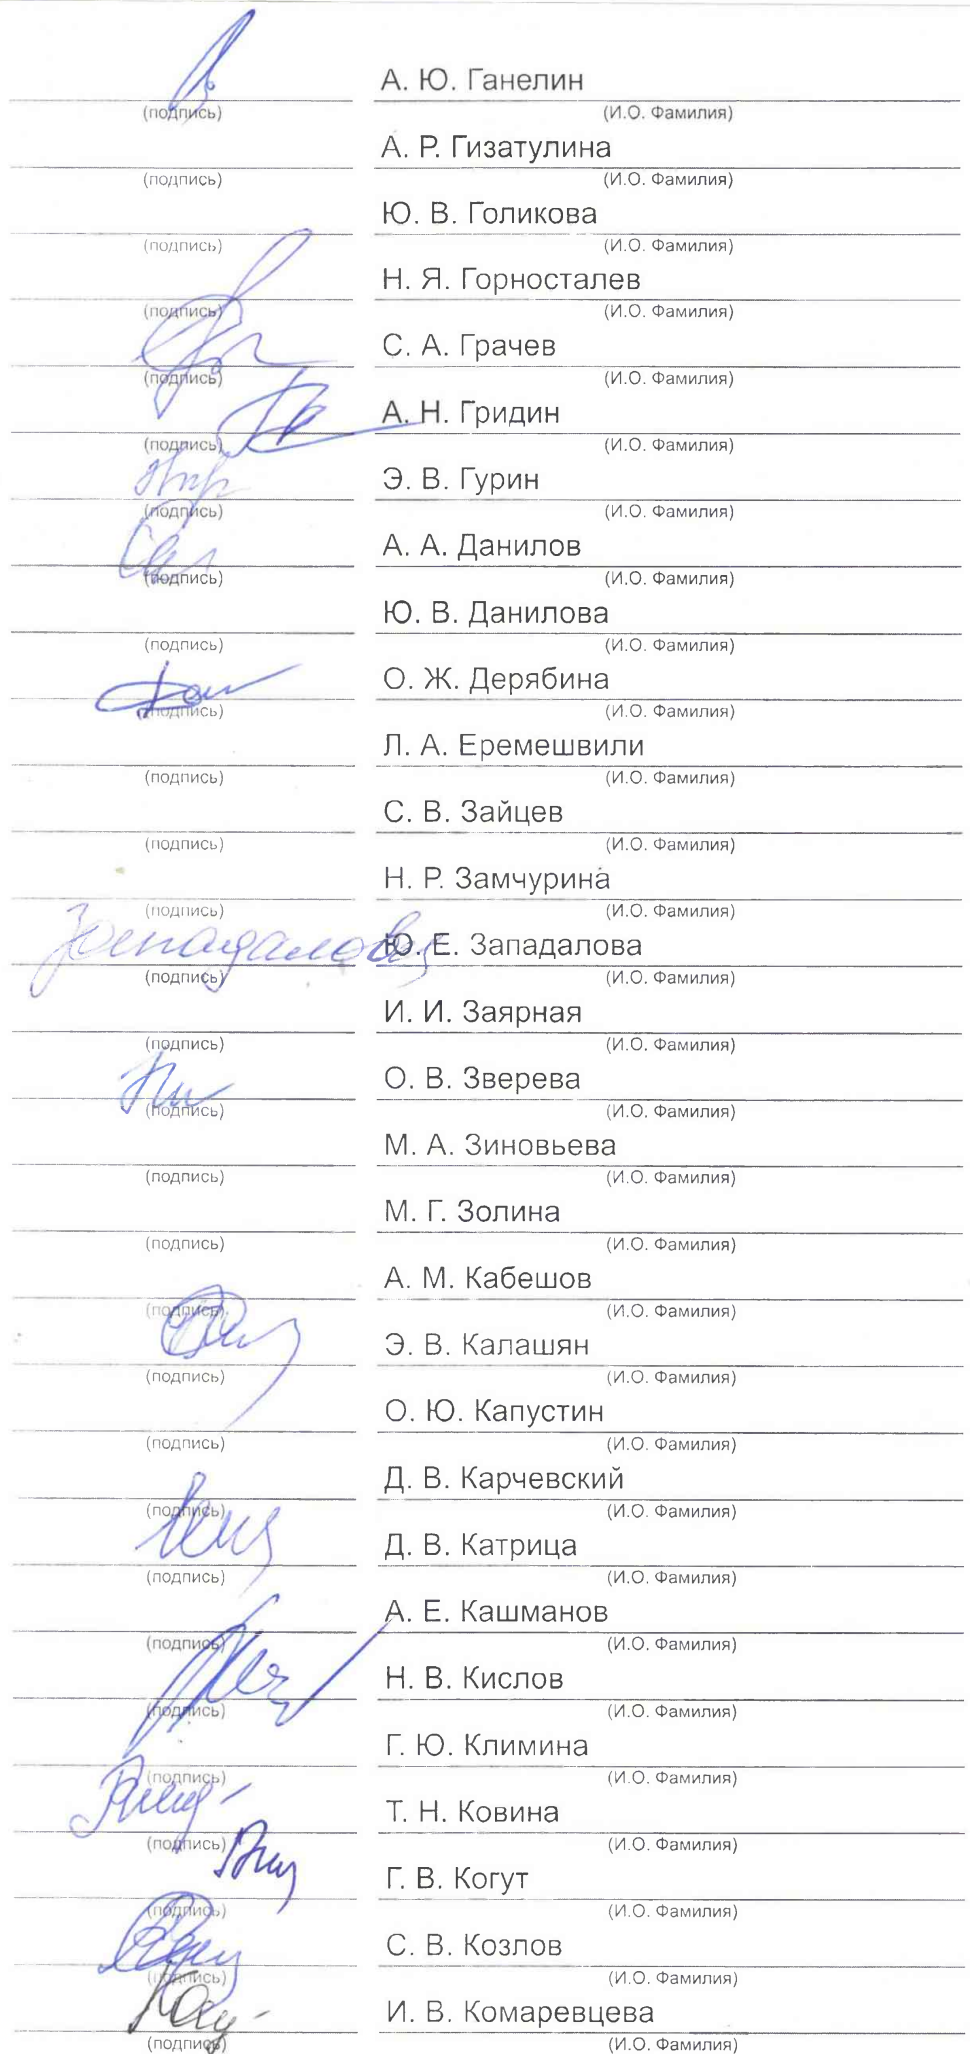 А. Ю. Ганелин
(подпись) (И.О. Фамилия)
А. Р. Гизатулина
(подпись) (И.О. Фамилия)
Ю. В. Голикова
(подпись) (И.О. Фамилия)
Н. Я. Горносталев
(подпись) (И.О. Фамилия)
С. А. Грачев
(подпись) (И.О. Фамилия)
А. Н. Гридин
(подпись) (И.О. Фамилия)
Э. В. Гурин
(подпись) (И.О. Фамилия)
А. А. Данилов
(подпись) (И.О. Фамилия)
Ю. В. Данилова
(подпись) (И.О. Фамилия)
О. Ж. Дерябина
(подпись) (И.О. Фамилия)
Л. А. Еремешвили
(подпись) (И.О. Фамилия)
С. В. Зайцев
(подпись) (И.О. Фамилия)
Н. Р. Замчурина
(подпись) (И.О. Фамилия)
Западалова Ю. Е. Западалова
(подпись) (И.О. Фамилия)
И. И. Заярная
(подпись) (И.О. Фамилия)
О. В. Зверева
(подпись) (И.О. Фамилия)
М. А. Зиновьева
(подпись) (И.О. Фамилия)
М. Г. Золина
(подпись) (И.О. Фамилия)
А. М. Кабешов
(подпись) (И.О. Фамилия)
Э. В. Калашян
(подпись) (И.О. Фамилия)
О. Ю. Капустин
(подпись) (И.О. Фамилия)
Д. В. Карчевский
(подпись) (И.О. Фамилия)
Д. В. Катрица
(подпись) (И.О. Фамилия)
А. Е. Кашманов
(подпись) (И.О. Фамилия)
Н. В. Кислов
(подпись) (И.О. Фамилия)
Г. Ю. Климина
(подпись) (И.О. Фамилия)
Т. Н. Ковина
(подпись) (И.О. Фамилия)
Г. В. Когут
(подпись) (И.О. Фамилия)
С. В. Козлов
(подпись) (И.О. Фамилия)
И. В. Комаревцева
(подпись) (И.О. Фамилия)